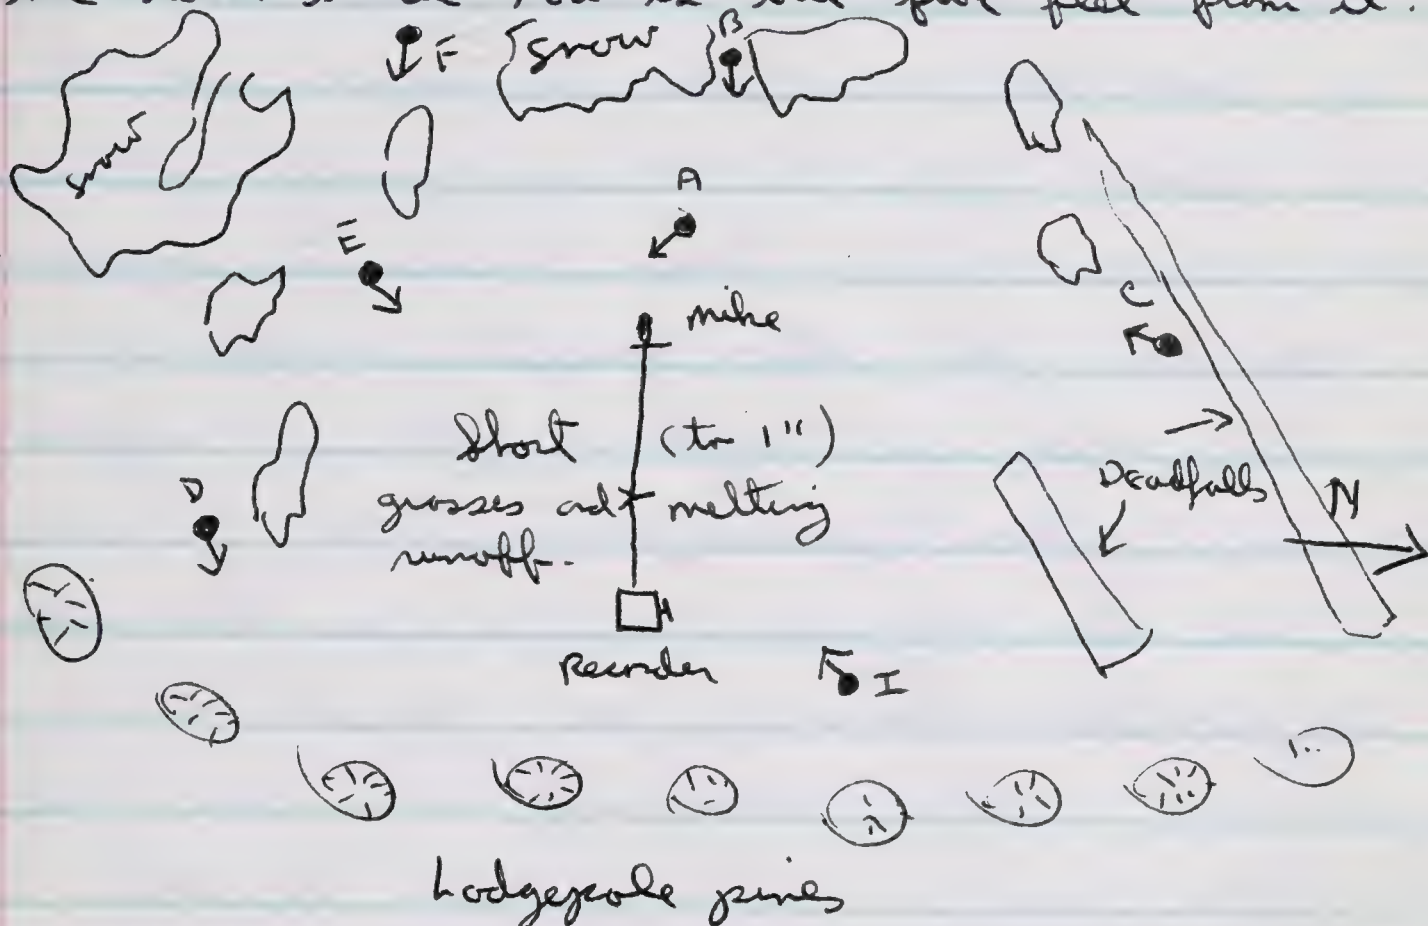 four feet from it.
F
Snow
B
snow
A
E
mike
C
Short (to 1")
grasses and melting
runoff.
D
Deadfalls
N
Recorder
I
Lodgepole pines